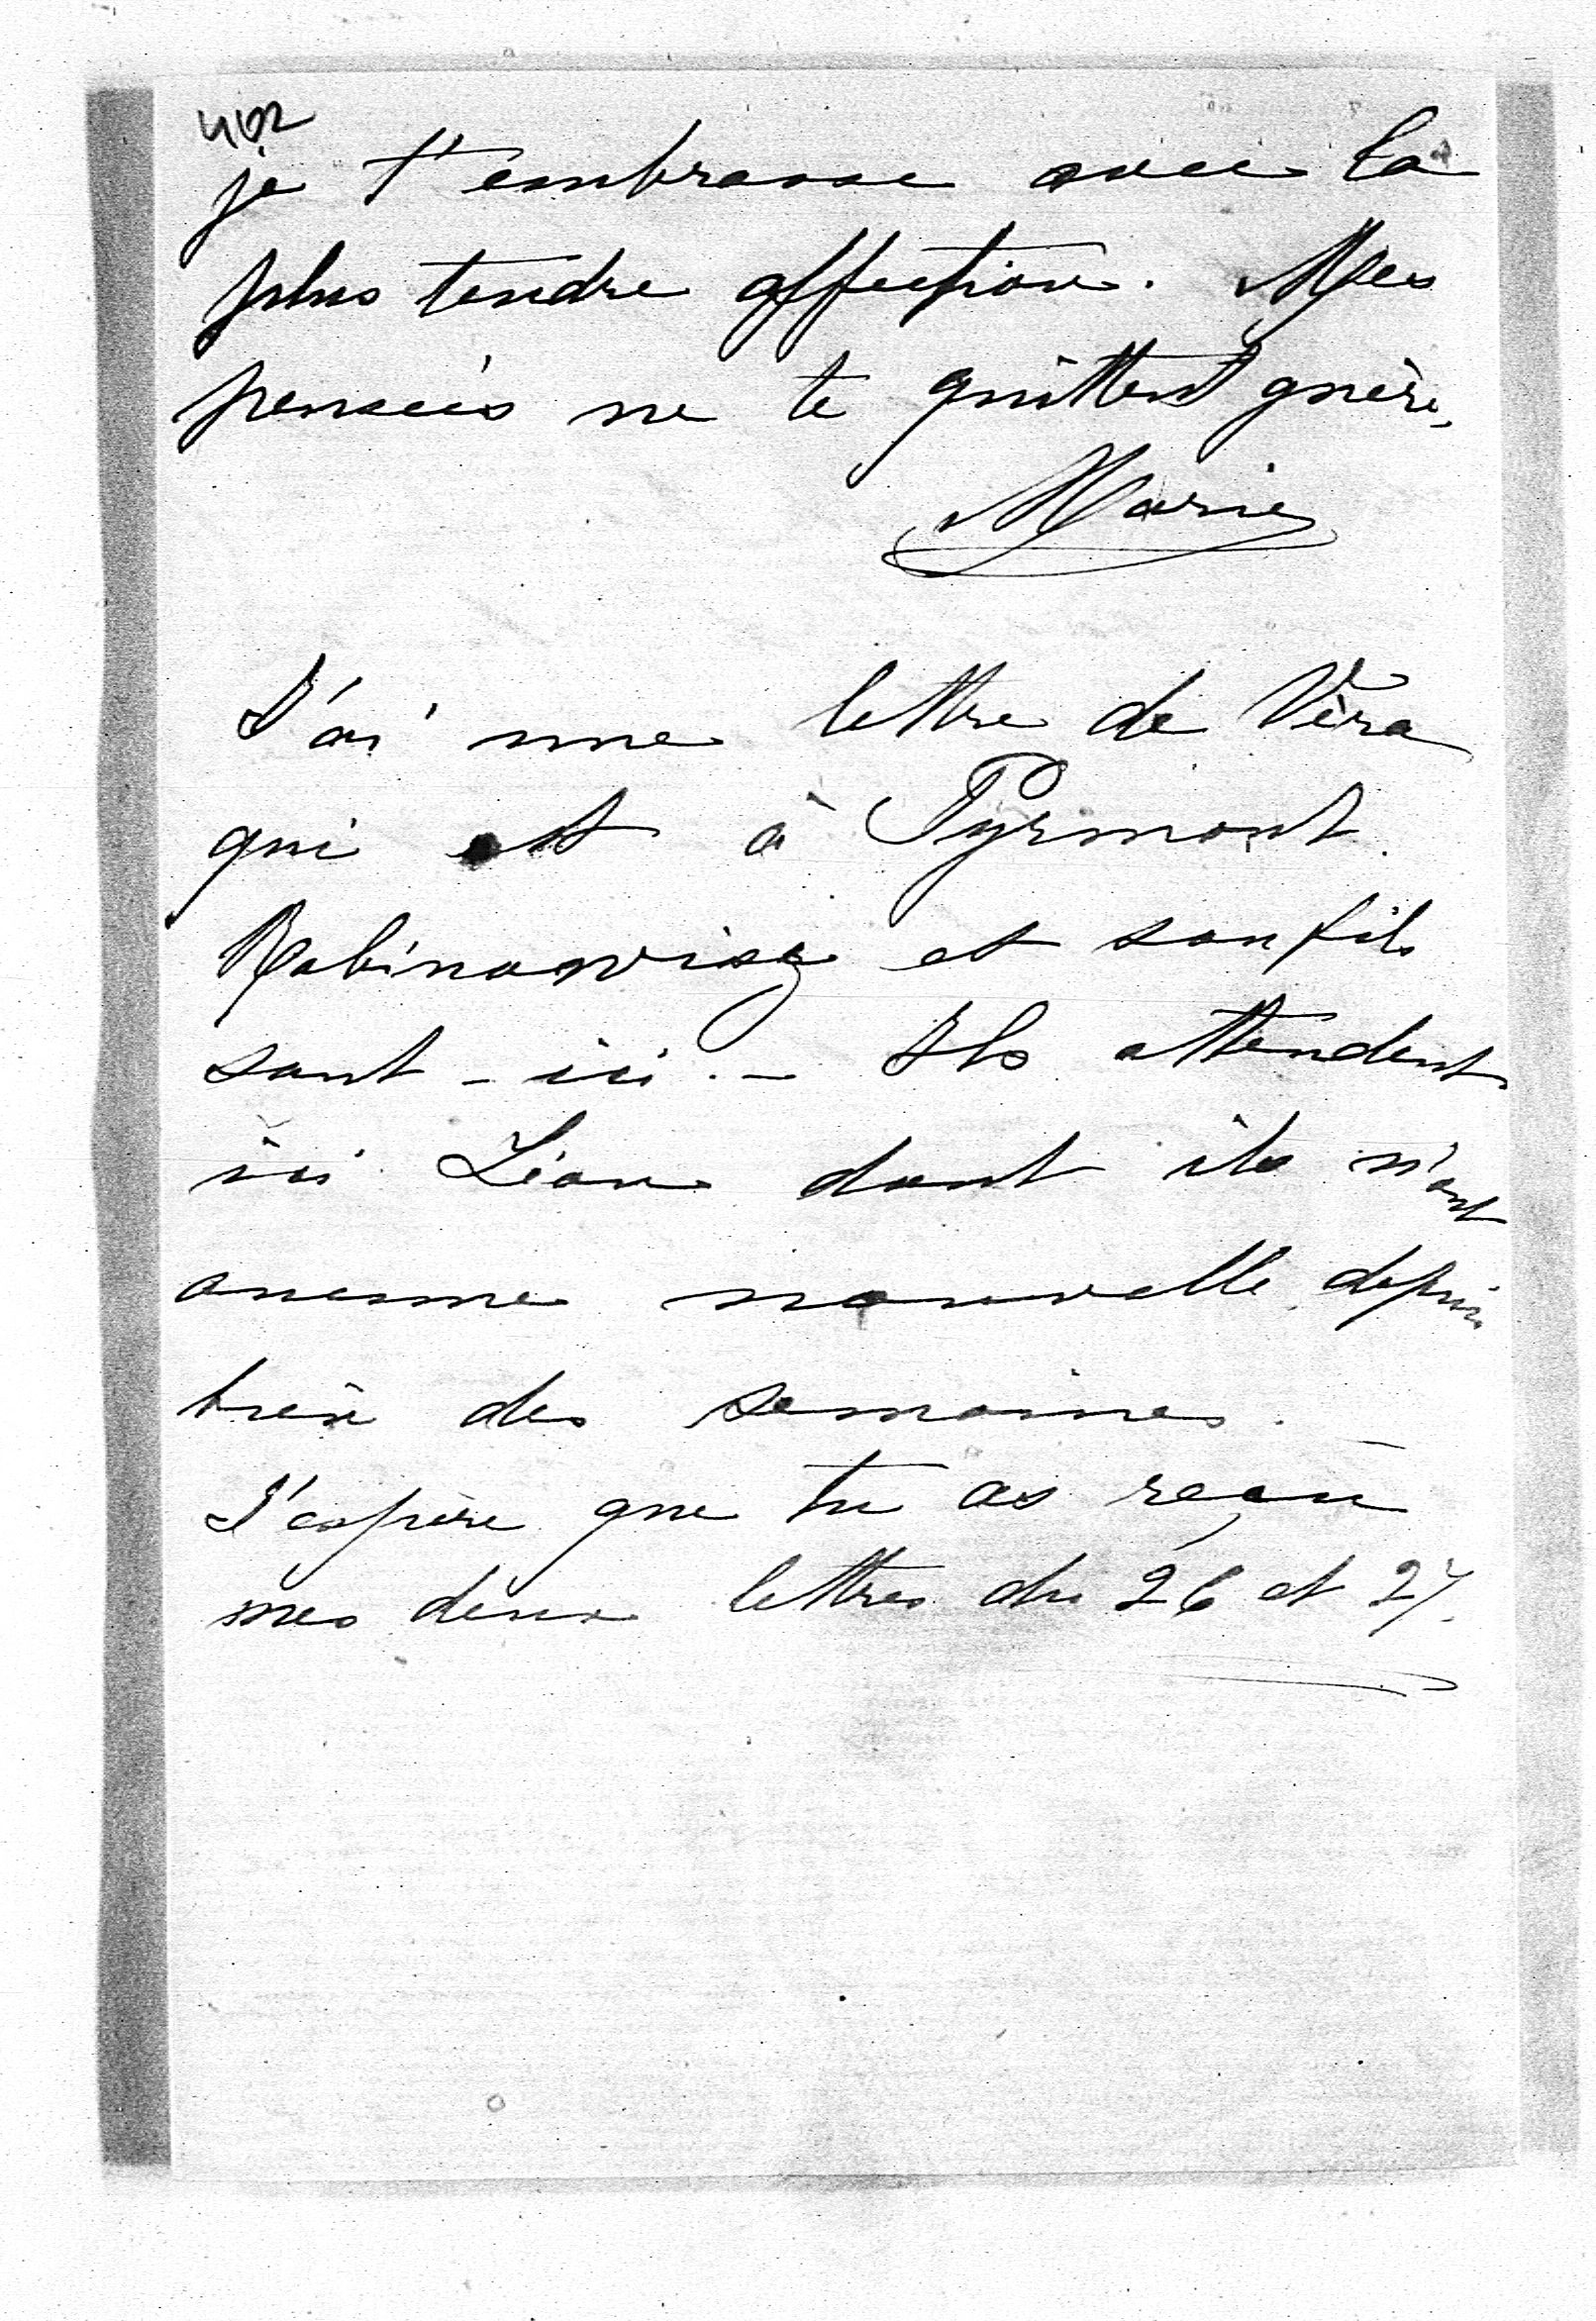 402
je t'embrasse avec la
plus tendre affection. Mes
pensées ne te quittent guère,
Marie
J'ai une lettre de Véra
qui est à Pyrmont.
Rabinowisz et son fils
sont - ici. - Ils attendent
ici Léon dont ils n'ont
aucune nouvelle depuis
des semaines.
J'espère que tu as reçu
mes deux lettres du 26 et 27.